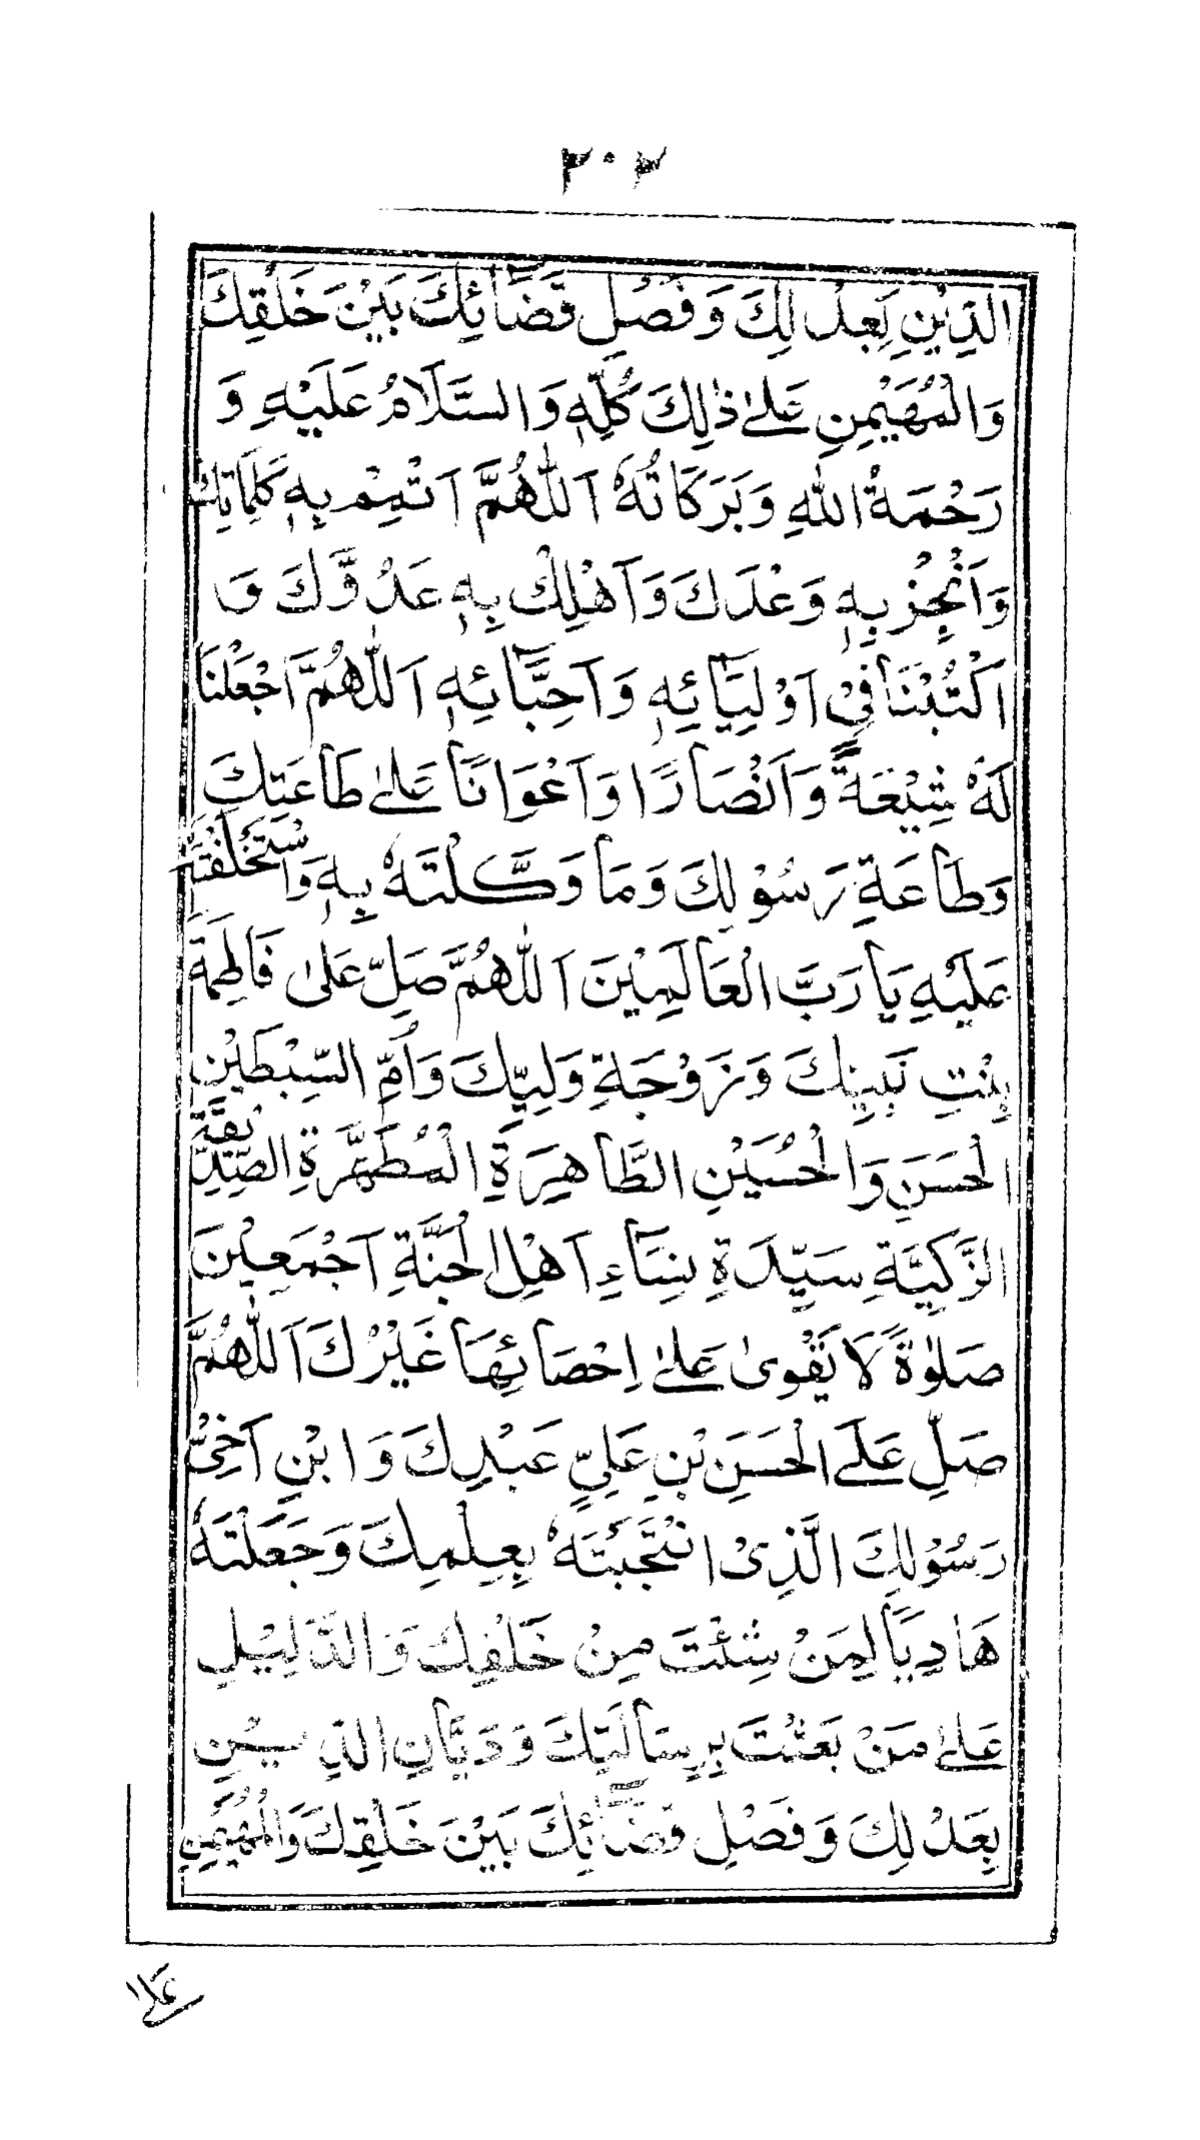 ٢٠٢
الدِّيْنِ بِعَدْلِكَ وَفَصْلِ قَضَائِكَ بَيْنَ خَلْقِكَ
وَالْمُهَيْمِنِ عَلٰى ذٰلِكَ كُلِّهٖ وَالسَّلَامُ عَلَيْهِ وَ
رَحْمَةُ اللهِ وَبَرَكَاتُهٗ اَللّٰهُمَّ اَتْمِمْ بِهٖ كَلِمَاتِكَ
وَاَنْجِزْ بِهٖ وَعْدَكَ وَاَهْلِكْ بِهٖ عَدُوَّكَ وَ
اكْتُبْنَا فِيْ اَوْلِيَائِهٖ وَاَحِبَّائِهٖ اَللّٰهُمَّ اجْعَلْنَا
لَهٗ شِيْعَةً وَاَنْصَارًا وَاَعْوَانًا عَلٰى طَاعَتِكَ
وَطَاعَةِ رَسُوْلِكَ وَمَا وَكَّلْتَهٗ بِهٖ وَاسْتَخْلَفْتَهٗ
عَلَيْهِ يَا رَبَّ الْعَالَمِيْنَ اَللّٰهُمَّ صَلِّ عَلٰى فَاطِمَةَ
بِنْتِ نَبِيِّكَ وَزَوْجَةِ وَلِيِّكَ وَاُمِّ السِّبْطَيْنِ
الْحَسَنِ وَالْحُسَيْنِ الطَّاهِرَةِ الْمُطَهَّرَةِ الصِّدِّيْقَةِ
الزَّكِيَّةِ سَيِّدَةِ نِسَاءِ اَهْلِ الْجَنَّةِ اَجْمَعِيْنَ
صَلٰوةً لَا يَقْوٰى عَلٰى اِحْصَائِهَا غَيْرُكَ اَللّٰهُمَّ
صَلِّ عَلَى الْحَسَنِ بْنِ عَلِيٍّ عَبْدِكَ وَابْنِ اَخِيْ
رَسُوْلِكَ الَّذِيْ انْتَجَبْتَهٗ بِعِلْمِكَ وَجَعَلْتَهٗ
هَادِيًا لِمَنْ شِئْتَ مِنْ خَلْقِكَ وَالدَّلِيْلِ
عَلٰى مَنْ بَعَثْتَ بِرِسَالَتِكَ وَدَيَّانِ الدِّيْنِ
بِعَدْلِكَ وَفَصْلِ قَضَائِكَ بَيْنَ خَلْقِكَ وَالْمُهَيْمِنِ
عَلٰى